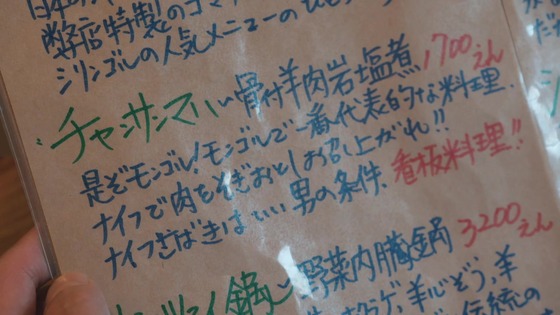 弊店特製のゴマ
シリンゴルの人気メニューの
チャンサンマハ 骨付羊肉岩塩煮 1700えん
是ぞモンゴル!モンゴルで一番代表的な料理.
ナイフで肉をそぎおとしお召し上がれ!!
ナイフさばきはいい男の条件. 看板料理!!
鍋 野菜内臓鍋 3200えん
羊心ぞう,羊
伝統の